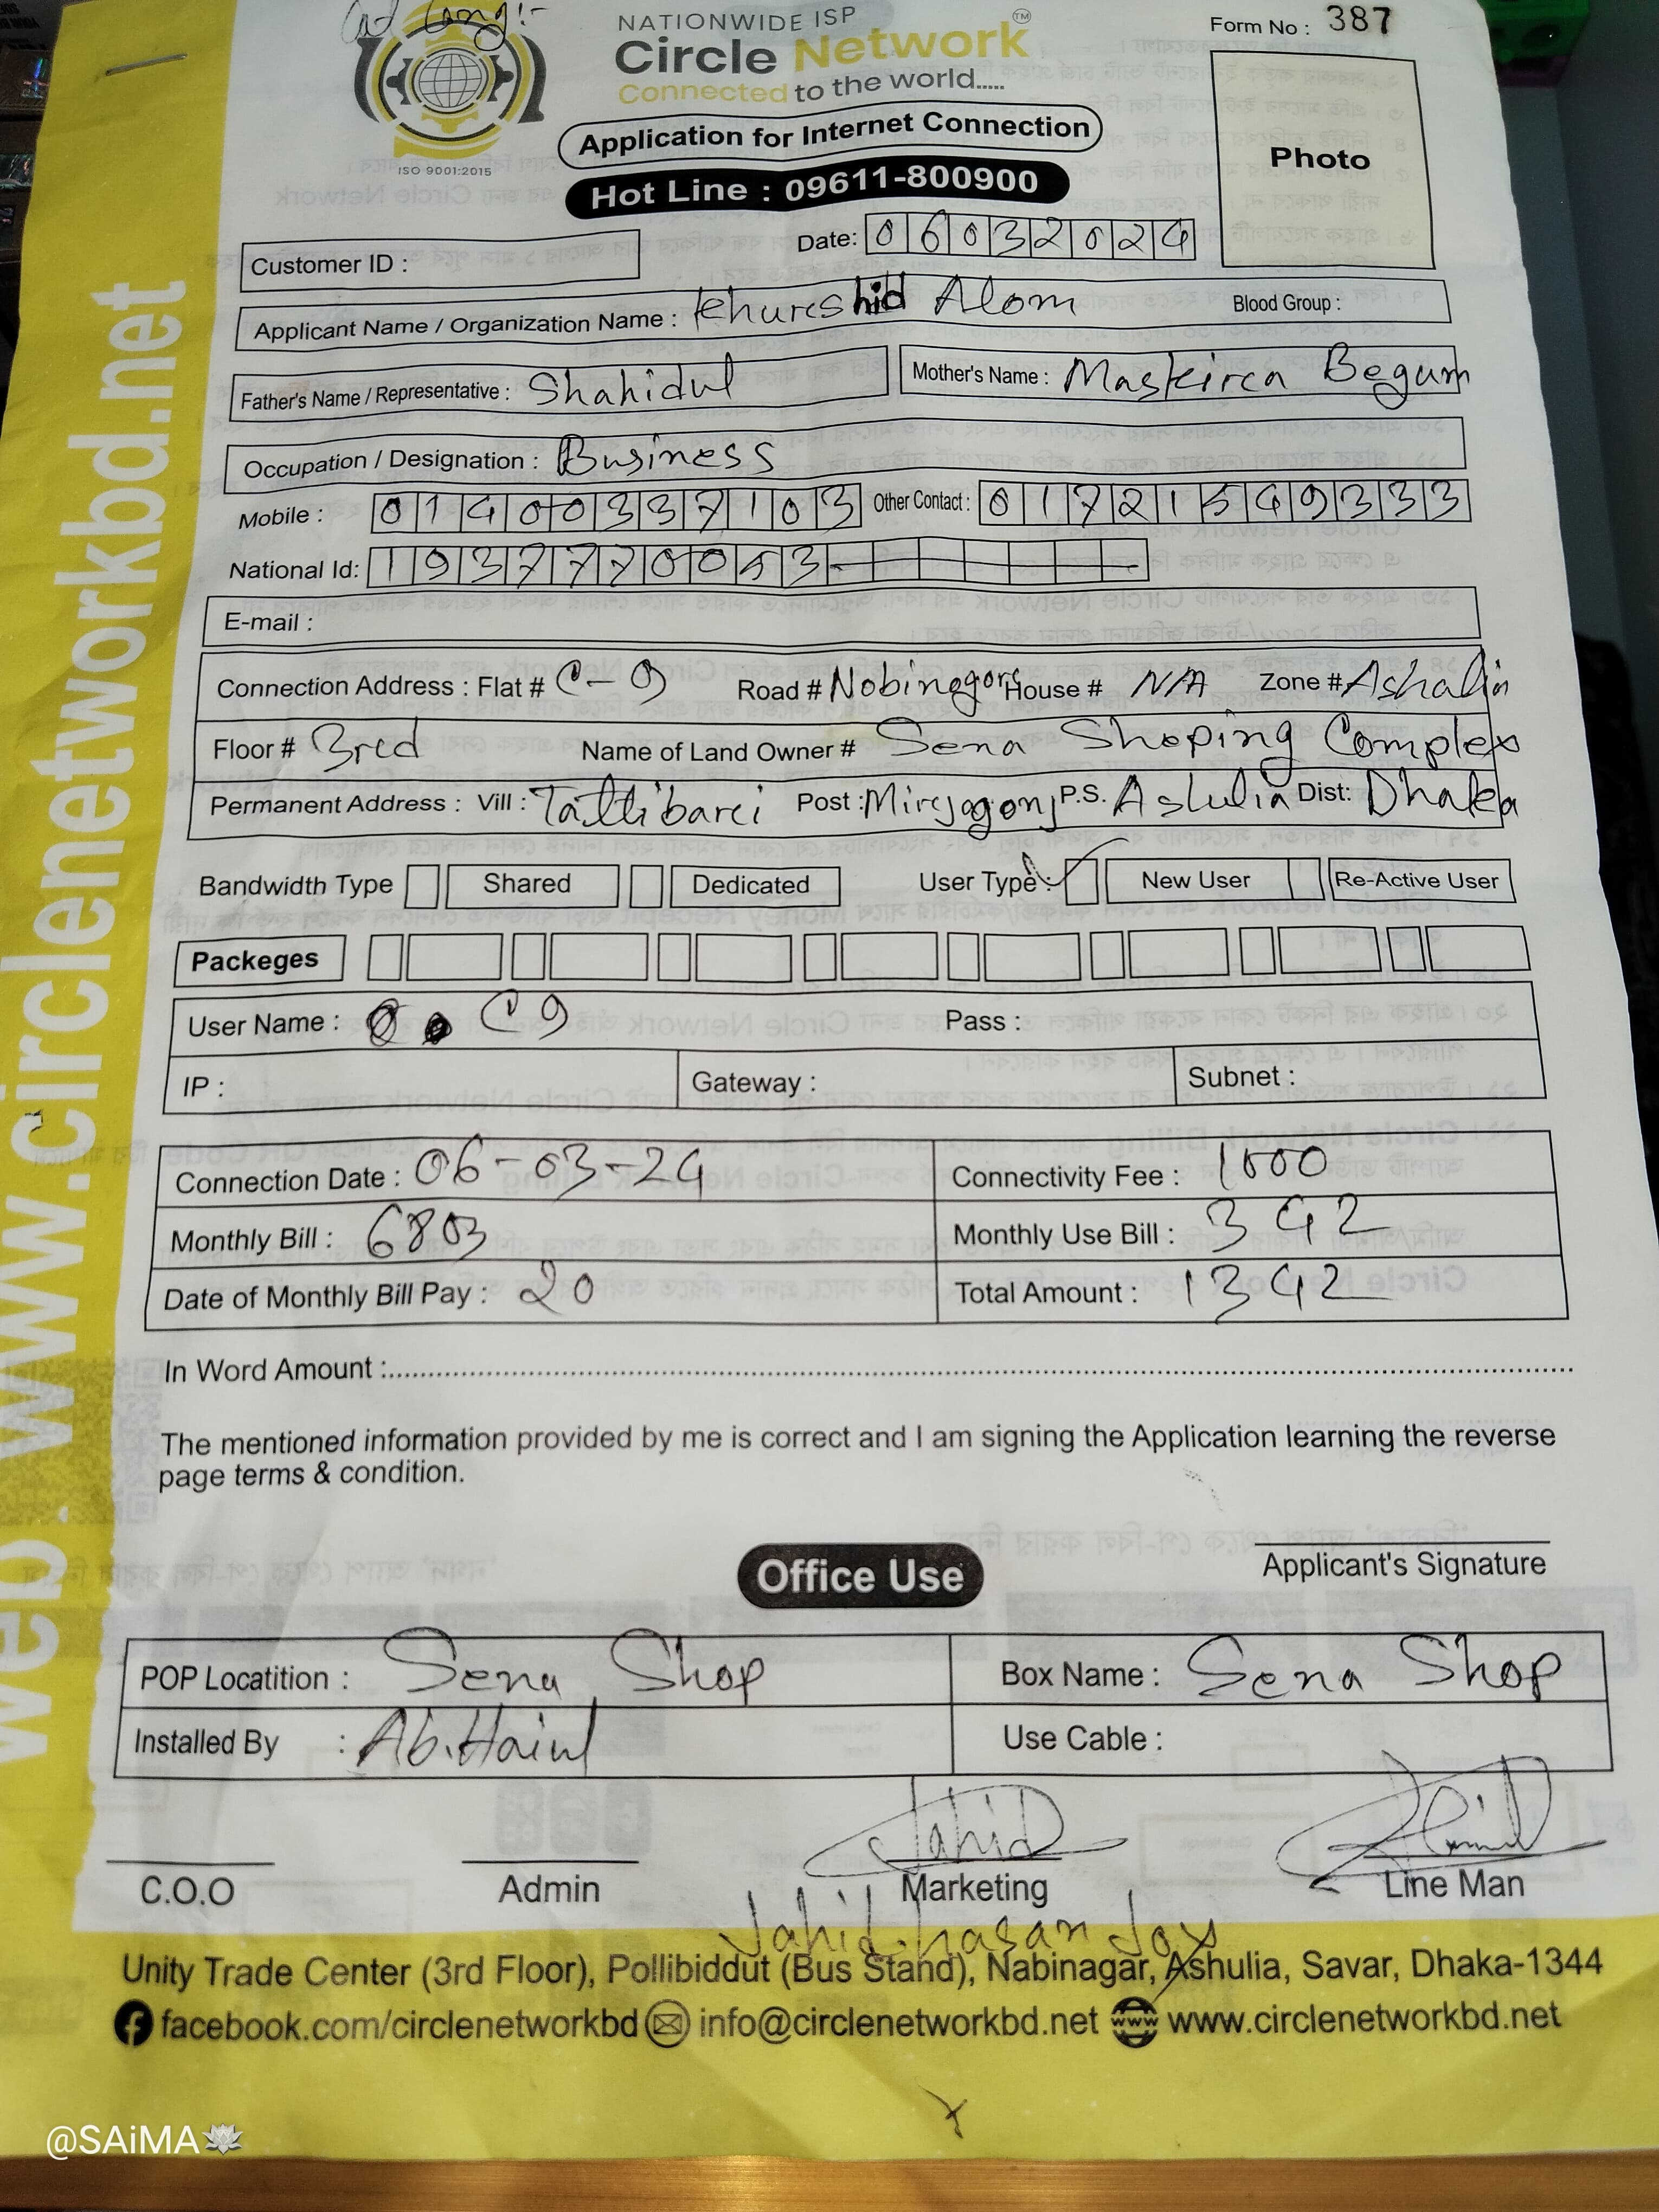 NATIONWIDE ISP
Circle Network™
Connected to the world.....
ISO 9001:2015
Form No : 387
Application for Internet Connection
Photo
Hot Line : 09611-800900
Date: 06032024
Customer ID :
Applicant Name / Organization Name : Khurshid Alom Blood Group :
Father's Name / Representative : Shahidul Mother's Name : Maskira Begum
Occupation / Designation : Business
Mobile : 01400337103 Other Contact : 01721549333
National Id: 1937770053
E-mail :
Connection Address : Flat # C-9 Road # Nobinogor House # N/A Zone # Ashalia
Floor # 3rd Name of Land Owner # Sena Shoping Complex
Permanent Address : Vill : Post : P.S. Ashulia Dist: Dhaka
Bandwidth Type Shared Dedicated User Type New User Re-Active User
Packeges
User Name : C9 Pass :
IP : Gateway : Subnet :
Connection Date : 06-03-24 Connectivity Fee : 1000
Monthly Bill : Monthly Use Bill : 342
Date of Monthly Bill Pay : 20 Total Amount : 1342
In Word Amount :
The mentioned information provided by me is correct and I am signing the Application learning the reverse
page terms & condition.
Applicant's Signature
Office Use
POP Locatition : Sena Shop Box Name : Sena Shop
Installed By : Use Cable :
Jahid
C.O.O Admin Marketing Line Man
Jahid hasan Joy
Unity Trade Center (3rd Floor), Pollibiddut (Bus Stand), Nabinagar, Ashulia, Savar, Dhaka-1344
facebook.com/circlenetworkbd info@circlenetworkbd.net www.circlenetworkbd.net
web: www.circlenetworkbd.net
@SAiMA